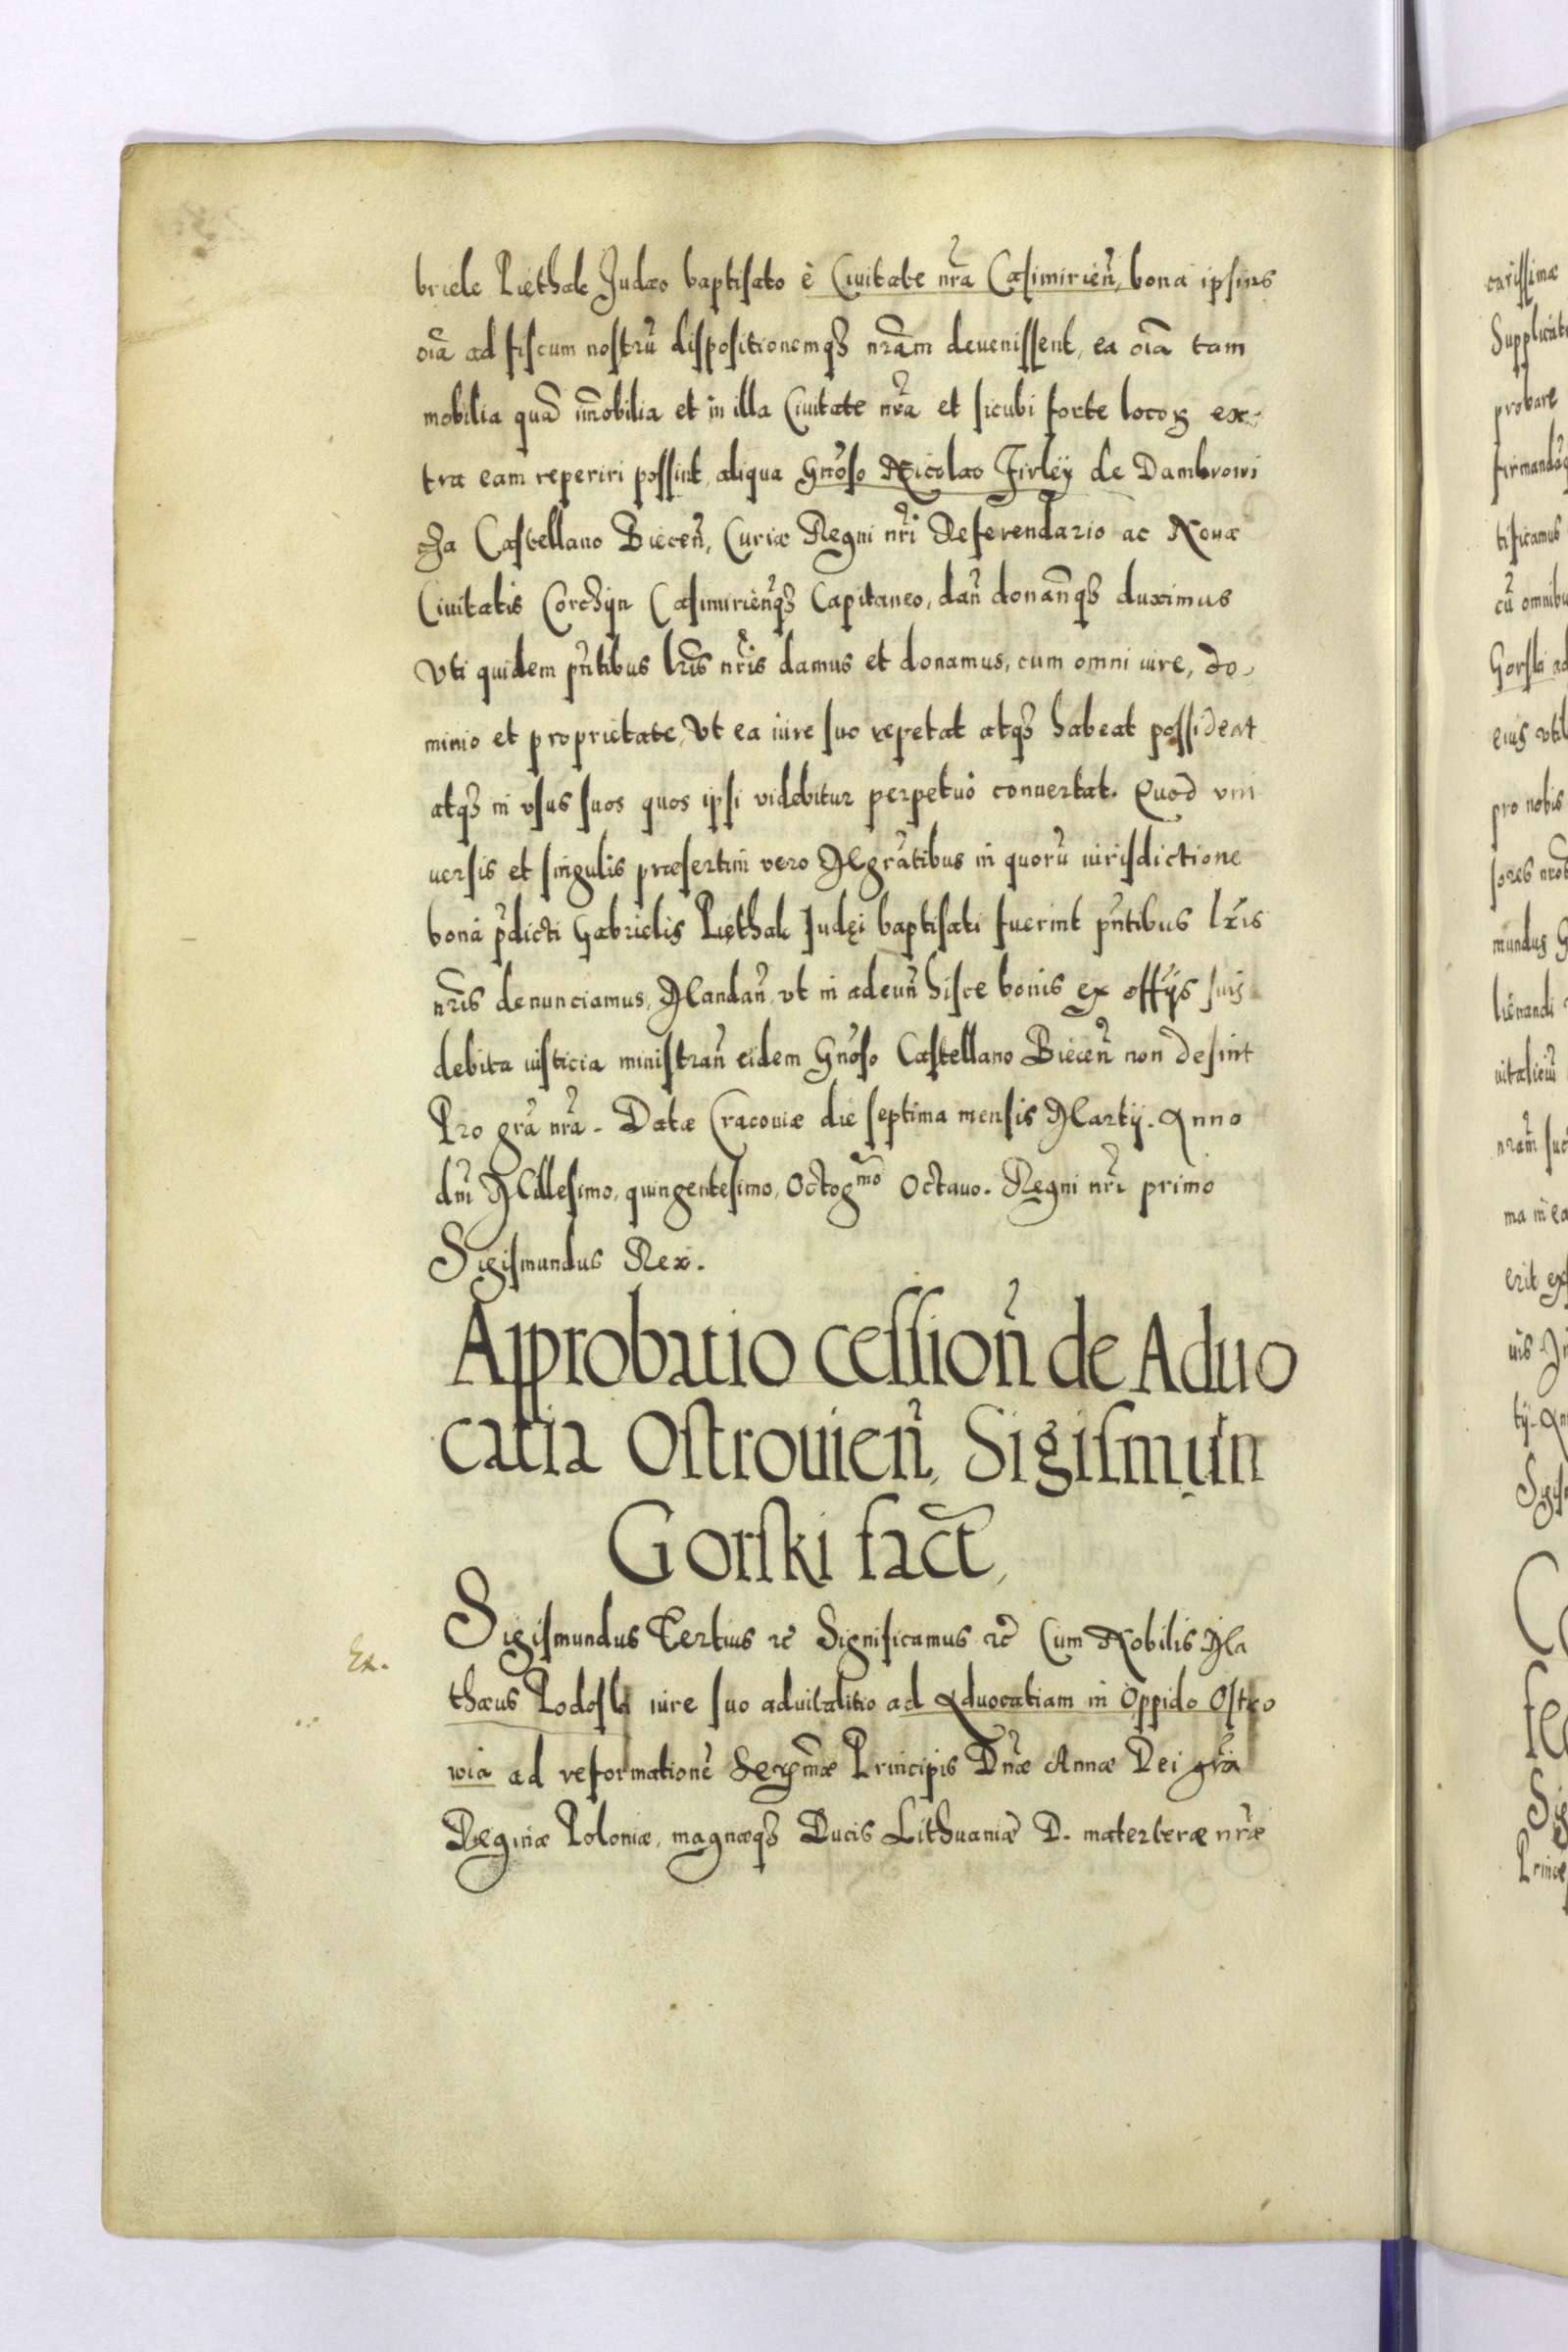 briele Pięthale Judæo baptisato è Ciuitate nr̃a Casimirień, bona ipsius
oĩa ad fiscum nostrũ dispositionemqȝ nrãm deuenissent, ea oĩa tam
mobilia quã im̃obilia et in illa Ciuitate nr̃a et sicubi forte locoꝝ ex-
tra eam reperiri possint, aliqua Gnõso Nicolao Firleÿ de Dambrowi
cza Castellano Biecen̄, Curiæ Regni nr̃i Referendario ac Nouæ
Ciuitatis Corchÿn Casimirien̄qȝ Capitaneo, dan̄ donan̄qȝ duximus
Vti quidem pñtibus lrĩs nr̃is damus et donamus, cum omni iure, do-
minio et proprietate, Vt ea iure suo repetat atqȝ habeat possideat
atqȝ in vsus suos quos ipsi videbitur perpetuò conuertat. Quod vni
uersis et singulis præsertim vero Mgr̃atibus in quorũ iurisdictione
bona p̃dicti Gabrielis Pięthale Judęi baptisati fuerint pñtibus lr̃is
nrĩs denunciamus, Mandan̄, vt in adeun̄ hisce bonis ex offÿs suis
debita iusticia ministran̄ eidem Gnõso Castellano Biecen̄ non desint
Pro gr̃a nr̃a. Datæ Cracouiæ die septima mensis Martÿ. Anno
dñi Millesimo, quingentesimo, Octogmo Octauo. Regni nr̃i primo
Sigismundus Rex.
Approbatio cession̄ de Aduo
catia Ostrouien̄, Sigismun
Gorski fact̃,
Ex.
Sigismundus Tertius ꝛc̃ Significamus ꝛc̃ Cum Nobilis Ma
thæus Podoski iure suo aduitalitio ad Aduocatiam in Oppido Ostro
wia ad reformationẽ Serẽmæ Principis Dñæ Annæ Dei gr̃a
Reginæ Poloniæ, magnæqȝ Ducis Lithuaniæ D. materteræ nr̃æ